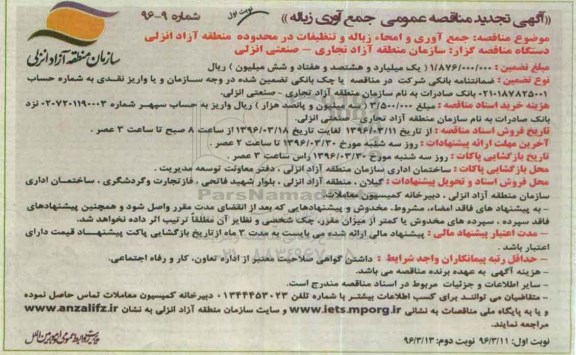 «آگهی تجدید مناقصه عمومی جمع آوری زباله» شماره ۹-۹۶
نوبت اول
سازمان منطقه آزاد انزلی
موضوع مناقصه: جمع آوری و امحاء زباله و تنظیفات در محدوده منطقه آزاد انزلی
دستگاه مناقصه گزار: سازمان منطقه آزاد تجاری – صنعتی انزلی
مبلغ تضمین : ۱/۸۷۶/۰۰۰/۰۰۰ ( یک میلیارد و هشتصد و هفتاد و شش میلیون ) ریال
نوع تضمین : ضمانتنامه بانکی شرکت در مناقصه یا چک بانکی تضمین شده در وجه سازمان و یا واریز نقدی به شماره حساب
۰۲۱۰۱۸۷۸۲۵۰۰۱ بانک صادرات به نام سازمان منطقه آزاد تجاری – صنعتی انزلی.
هزینه خرید اسناد مناقصه : مبلغ ۳/۵۰۰/۰۰۰ (سه میلیون و پانصد هزار) ریال واریز به حساب سپهر شماره ۰۲۰۷۲۰۱۱۹۰۰۰۳ نزد
بانک صادرات به نام سازمان منطقه آزاد تجاری – صنعتی انزلی.
تاریخ فروش اسناد مناقصه : از تاریخ ۱۳۹۶/۰۳/۱۱ لغایت تاریخ ۱۳۹۶/۰۳/۱۸ از ساعت ۸ صبح تا ساعت ۳ عصر .
آخرین مهلت ارائه پیشنهادات : روز سه شنبه مورخ ۱۳۹۶/۰۳/۳۰ تا ساعت ۲ عصر .
تاریخ بازگشایی پاکات : روز سه شنبه مورخ ۱۳۹۶/۰۳/۳۰ راس ساعت ۳ عصر .
محل بازگشایی پاکات : ساختمان اداری سازمان منطقه آزاد انزلی ، دفتر معاونت توسعه مدیریت .
محل فروش اسناد و تحویل پیشنهادات : گیلان ، منطقه آزاد انزلی ، بلوار شهید فاتحی ، فاز تجارت وگردشگری ، ساختمـان اداری
سازمان منطقه آزاد انزلی ، دبیرخانه کمیسیون معاملات.
– به پیشنهاد های فاقد امضاء، مشروط، مخدوش و پیشنهادهایی که بعد از انقضای مدت مقرر واصل شود و همچنین پیشنهادهای
فاقد سپرده ، سپرده های مخدوش یا کمتر از میزان مقرر، چک شخصی و نظایر آن مطلقاً ترتیب اثر داده نخواهد شد.
– مدت اعتبار پیشنهاد مالی : پیشنهاد مالی ارائه شده می بایست به مدت ۳ ماه از تاریخ بازگشایی پاکت پیشنهاد قیمت دارای
اعتبار باشد .
– حداقل رتبه پیمانکاران واجد شرایط : داشتن گواهی صلاحیت معتبر از اداره تعاون، کار و رفاه اجتماعی.
– هزینه آگهی به عهده برنده مناقصه می باشد.
– سایر اطلاعات و جزئیات مربوط در اسناد مناقصه مندرج است.
– متقاضیان می توانند برای کسب اطلاعات بیشتر با شماره تلفن ۰۱۳۴۴۴۵۳۰۲۳ دبیرخانه کمیسیون معاملات تماس حاصل نموده
و یا به پایگاه ملی مناقصات به نشانی www.iets.mporg.ir و سایت سازمان منطقه آزاد انزلی به نشان www.anzalifz.ir
مراجعه نمایند.
نوبت اول: ۹۶/۳/۱۱ نوبت دوم: ۹۶/۳/۱۳
مدیریت روابط عمومی و امور بین الملل